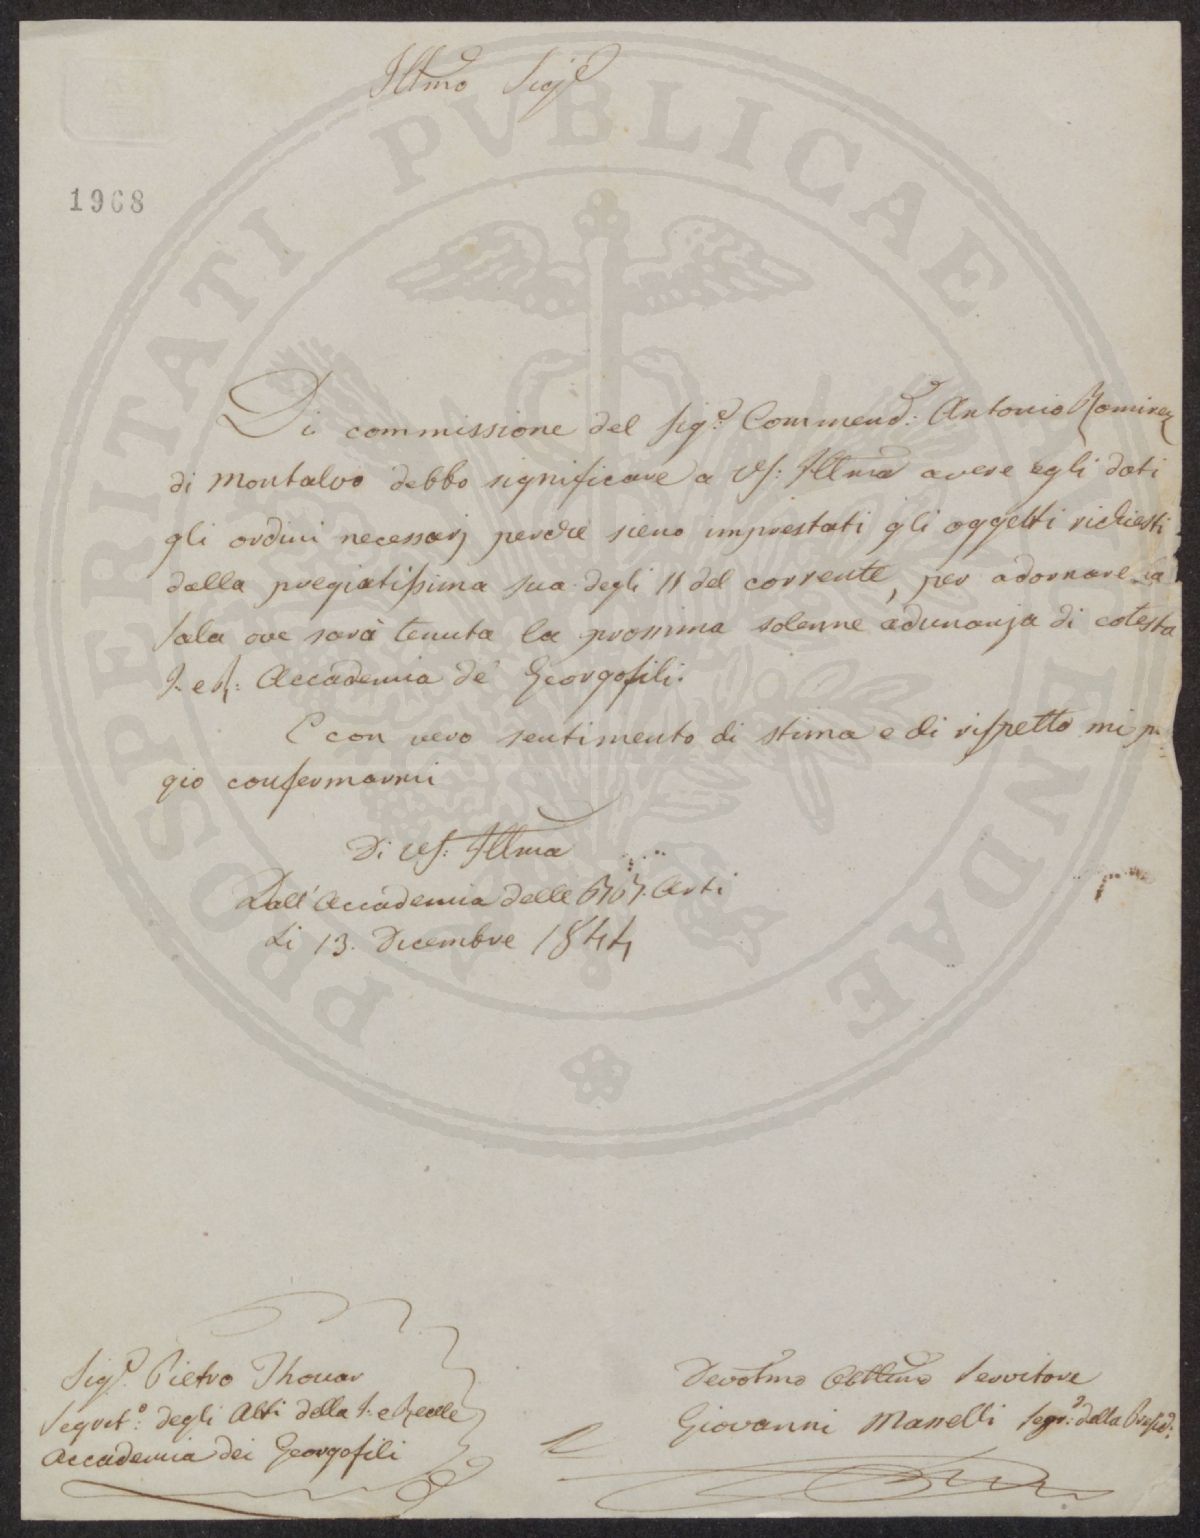 Illmo Sigre
1968
Di commissione del Sigr. Commend: Antonio Ramirez
di Montalvo debbo significare a VS: Illma avere egli dati
gli ordini necessarj perchè sieno imprestati gli oggetti richiesti
dalla pregiatissima sua degli 11 del corrente, per adornare la
Sala ove sarà tenuta la prossima solenne adunanza di cotesta
I. e R: Accademia de' Georgofili.
E con vero sentimento di stima e di rispetto mi
gio confermarmi
Di VS: Illma
Dall'Accademia delle Arti
Li 13. Dicembre 1844
Sigr. Pietro Thouar
Segret.o degli Atti della I. e Reale
Accademia dei Georgofili
Devotmo Obblmo Servitore
Giovanni Masselli Segr.o della Presid.
PROSPERITATI PVBLICAE AVGENDAE